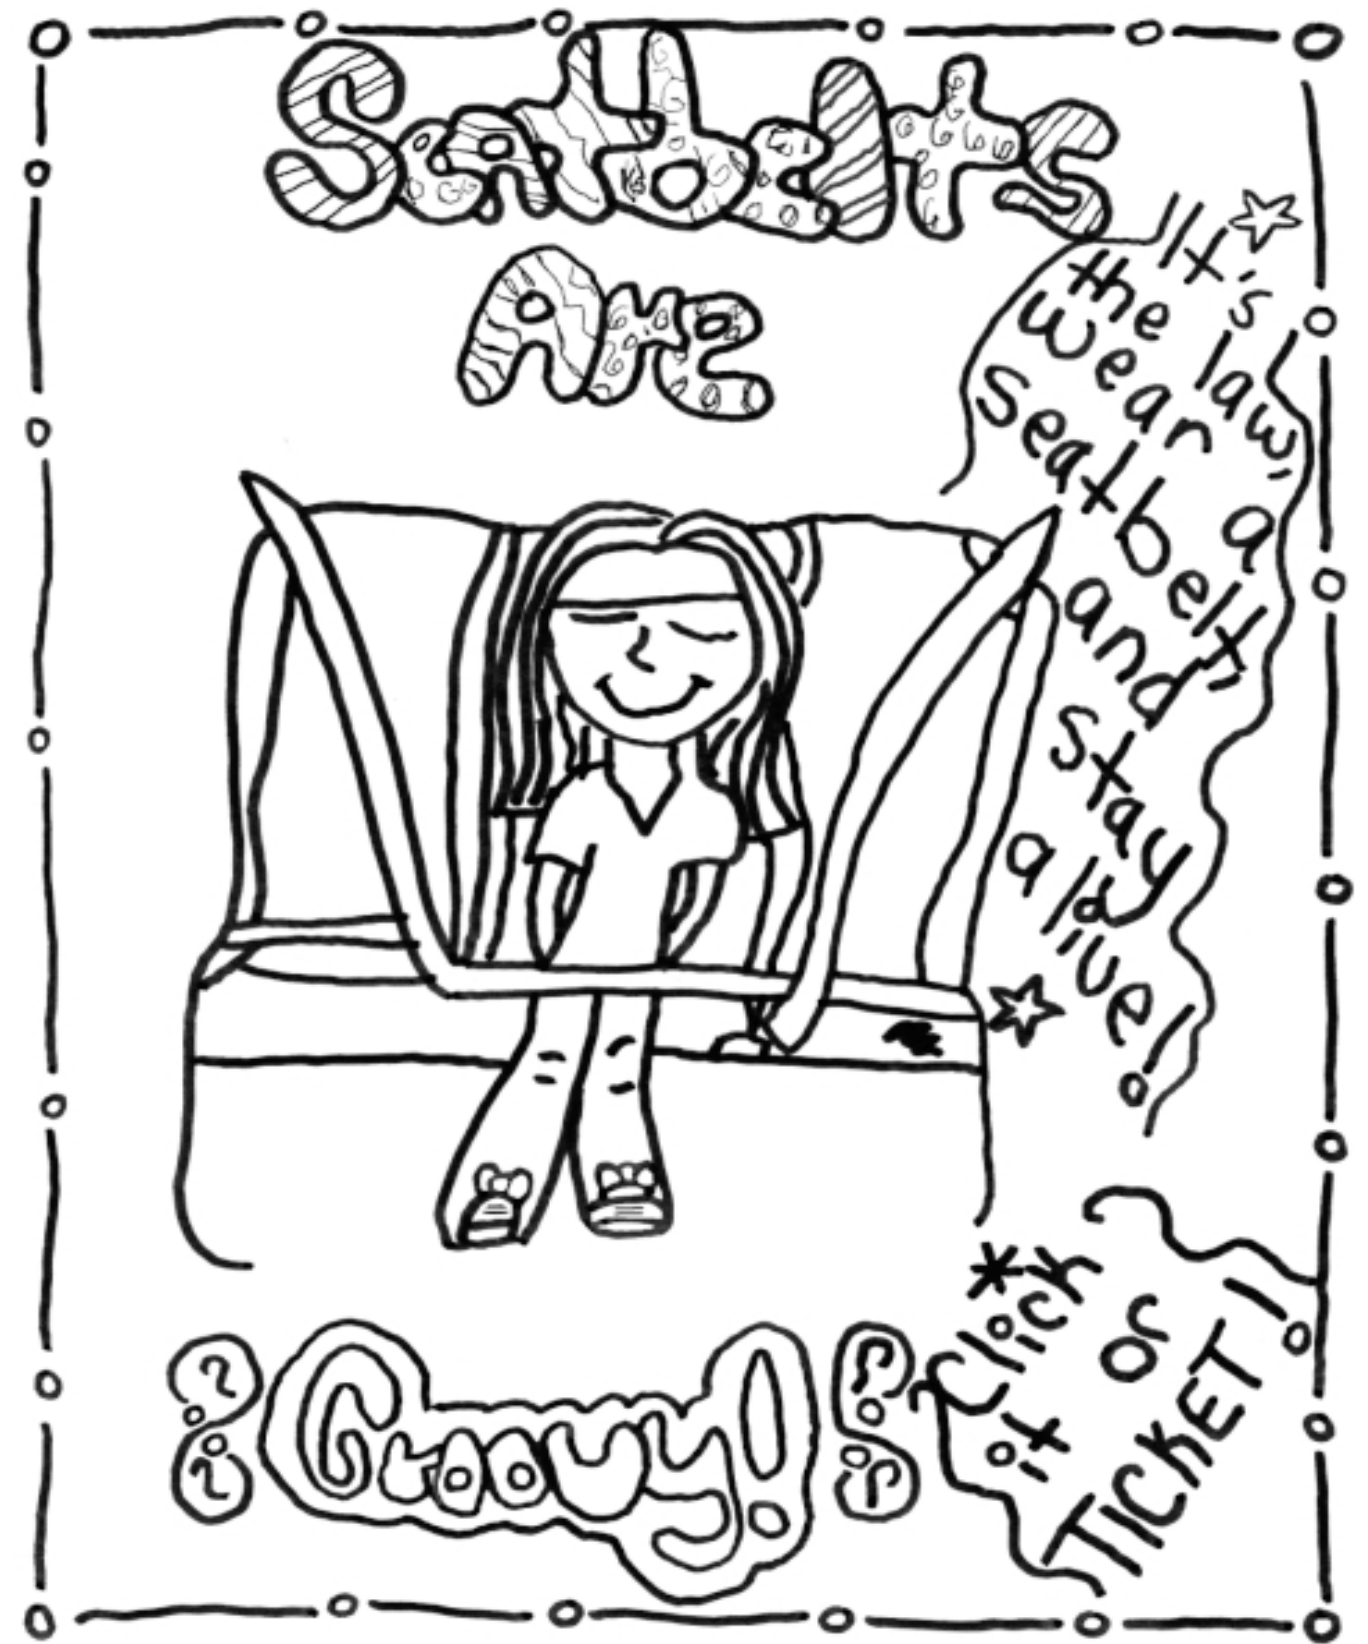 Seatbelts
Are
"It's
the law,
wear a
seatbelt"
and
stay
alive!
Groovy!
*Click
it or
TICKET!